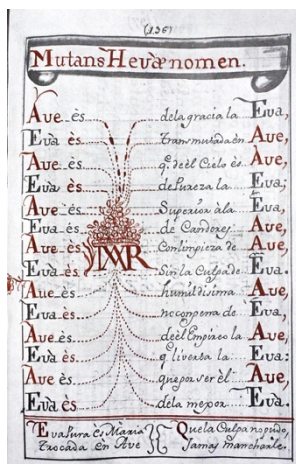 (136)
Mutans Hevæ nomen.
Ave ès dela gracia la Eva,
Eva ès transmutada en Ave,
Ave ès q̃ deèl Cielo ès Ave,
Eva ès de Pureza la Eva;
Ave ès Superior àla Eva,
Eva ès de Candores Ave,
Ave ès Con limpieza de Ave,
Eva ès Sin la Culpa de Eva.
MAR
Ave ès humildisima Ave,
Eva ès no compena de Eva,
Ave ès deèl Empireo la Ave,
Eva ès q̃ liversa la Eva:
Ave ès que por ver èl Ave,
Eva ès dela mexor Eva.
Eva pura ès Maria
trocada en Ave
Que la Culpa no pudo,
Jamas mancharle.